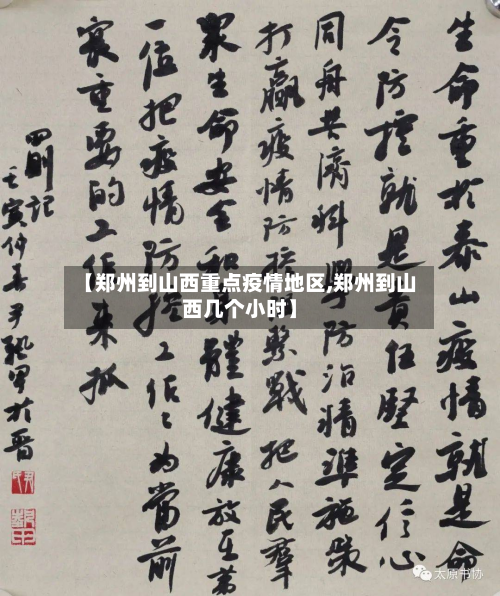 生命重于泰山疫情就是命
令防控就是责任坚定信心
同舟共济科学防治精准施策
打赢疫情防控
战把人民群
众生命安全和
体健康放在第
一位把疫情防控工作
为当前
最重要的工作来抓
四则记
壬寅仲春尹
于晋
【郑州到山西重点疫情地区,郑州到山
西几个小时】
太原书协